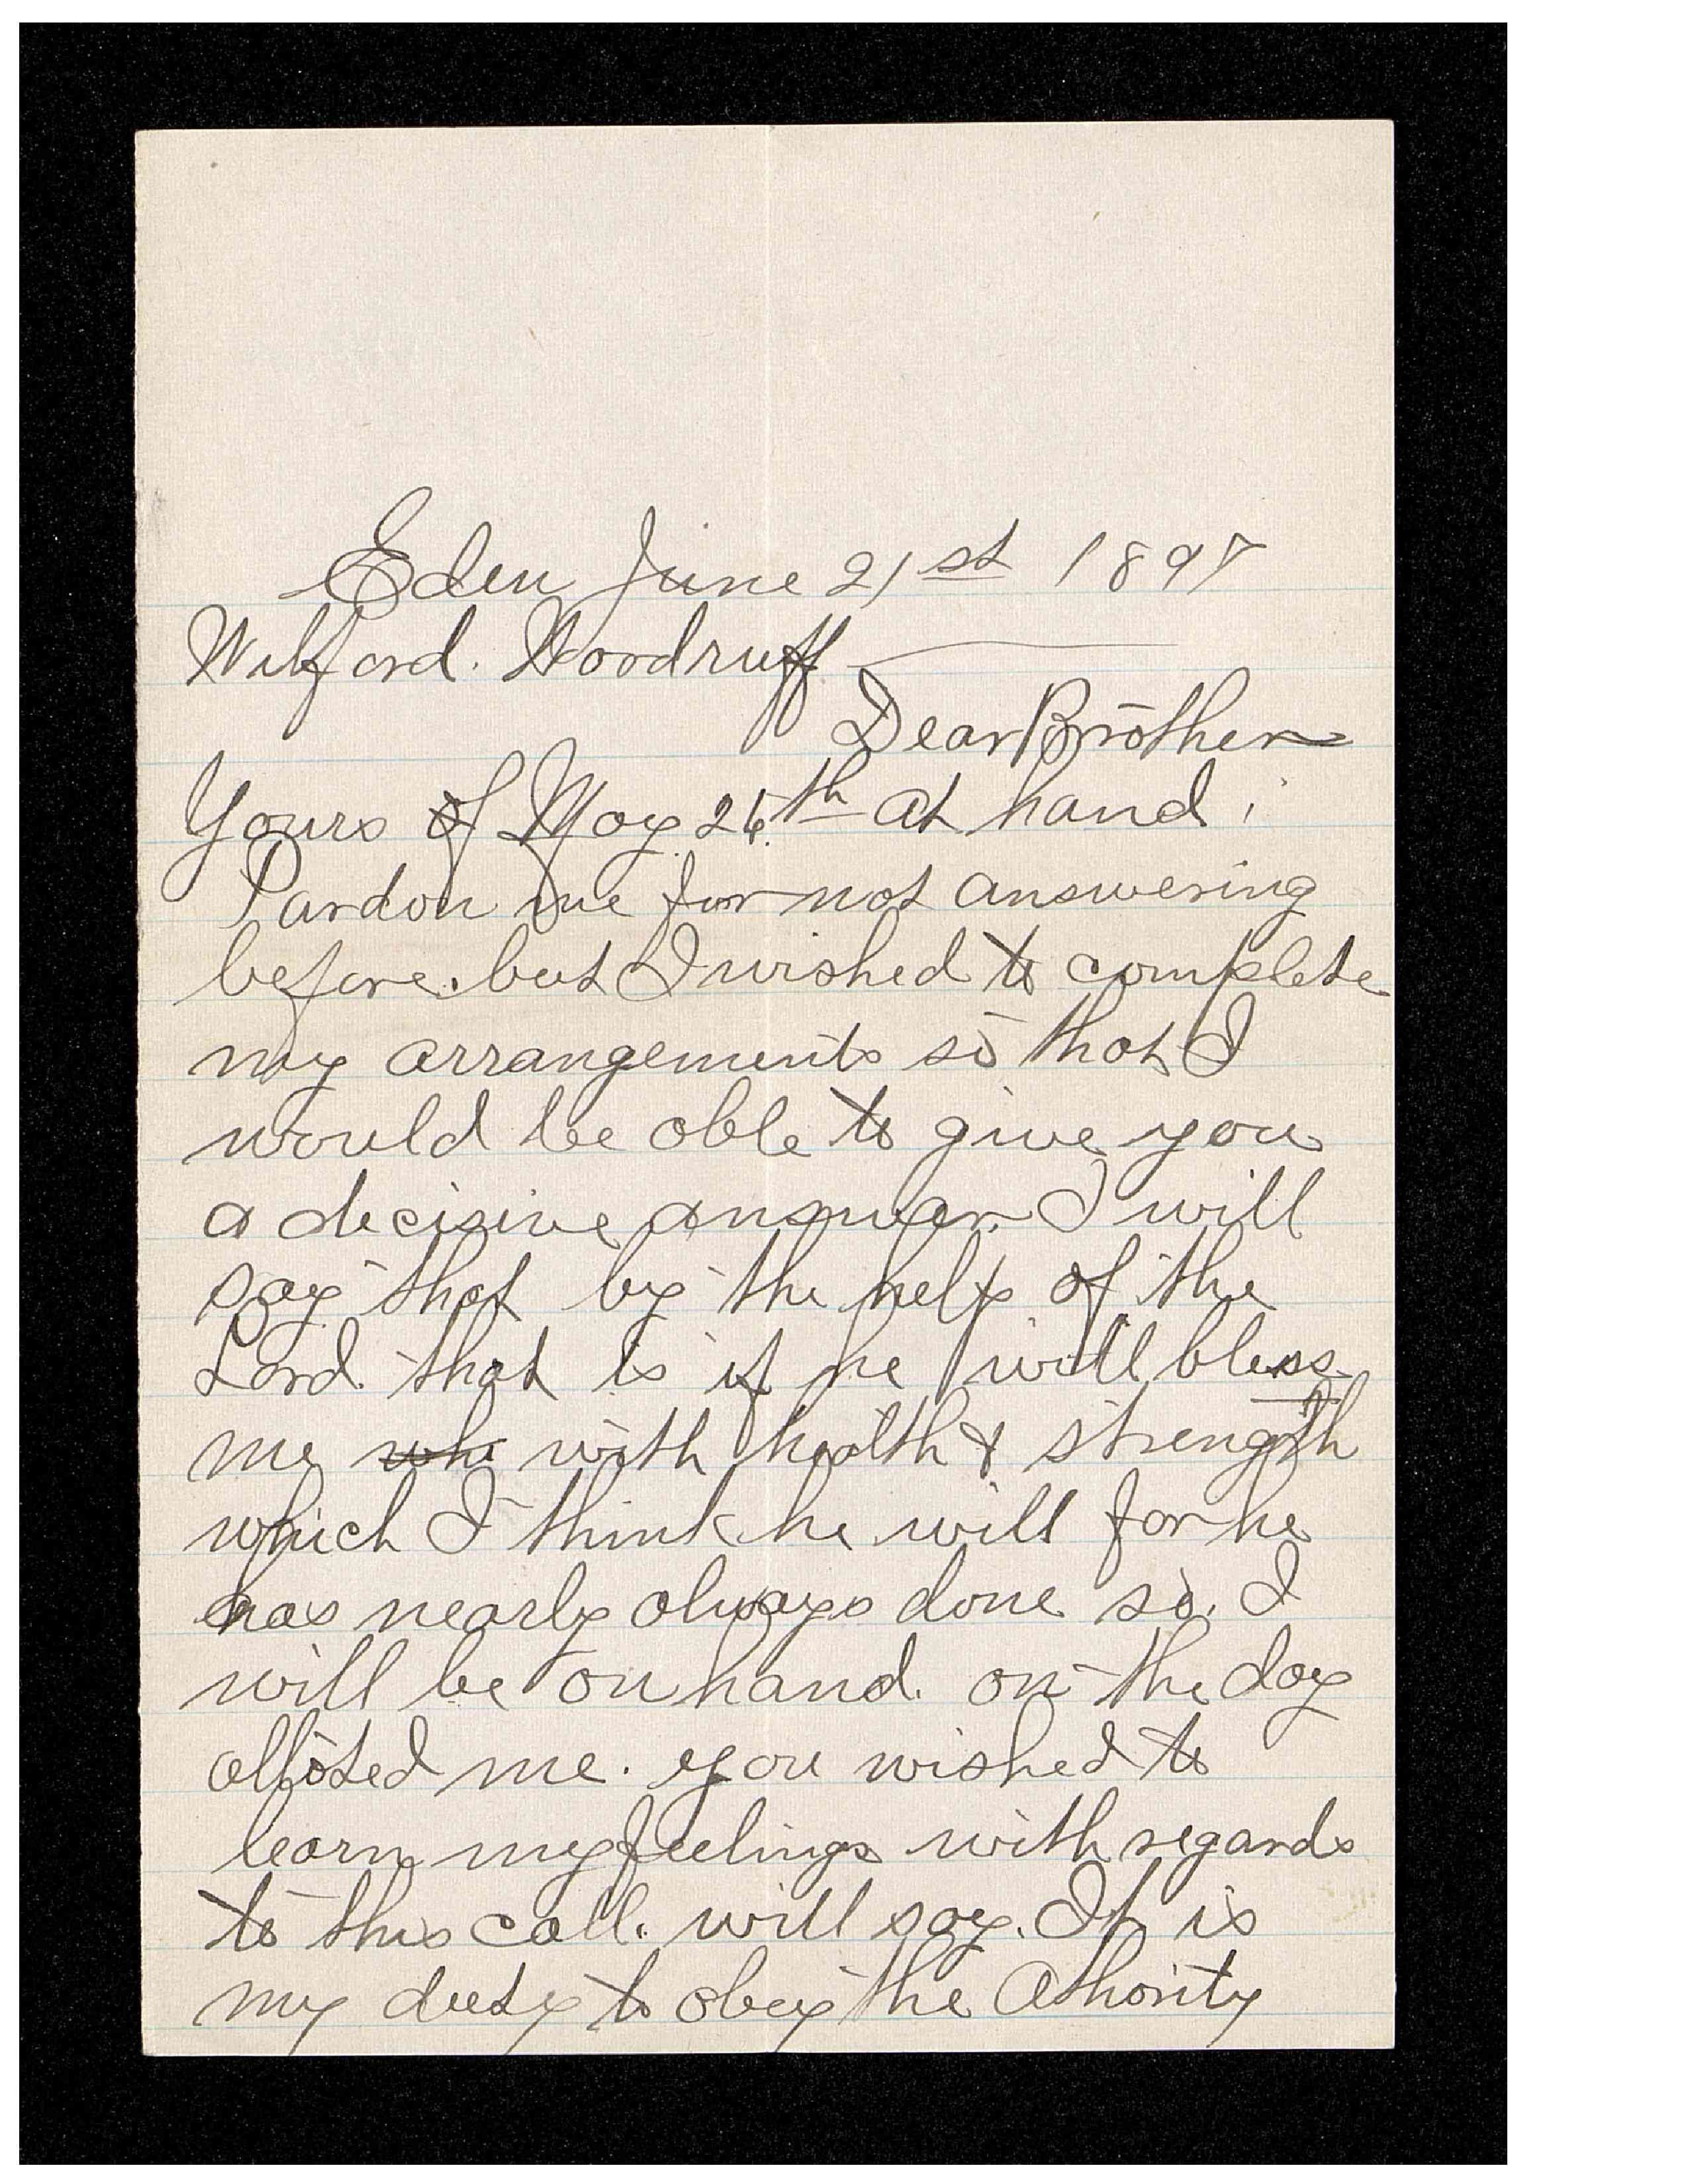 Eden June 21st 1897
Wilford. Woodruff
Dear Brother
Yours of May 26th at hand;
Pardon me for not answering
before. but I wished to complete
my arrangements so that I
would be able to give you
a decisive answer. I will
say that by the help of the
Lord. that is if he will bless
me whi with health & strength
which I think he will for he
has nearly always done so. I
will be on hand. on the day
alloted me. you wished to
learn my feelings with regards
to this call. will say. It is
my duty to obey the Athority